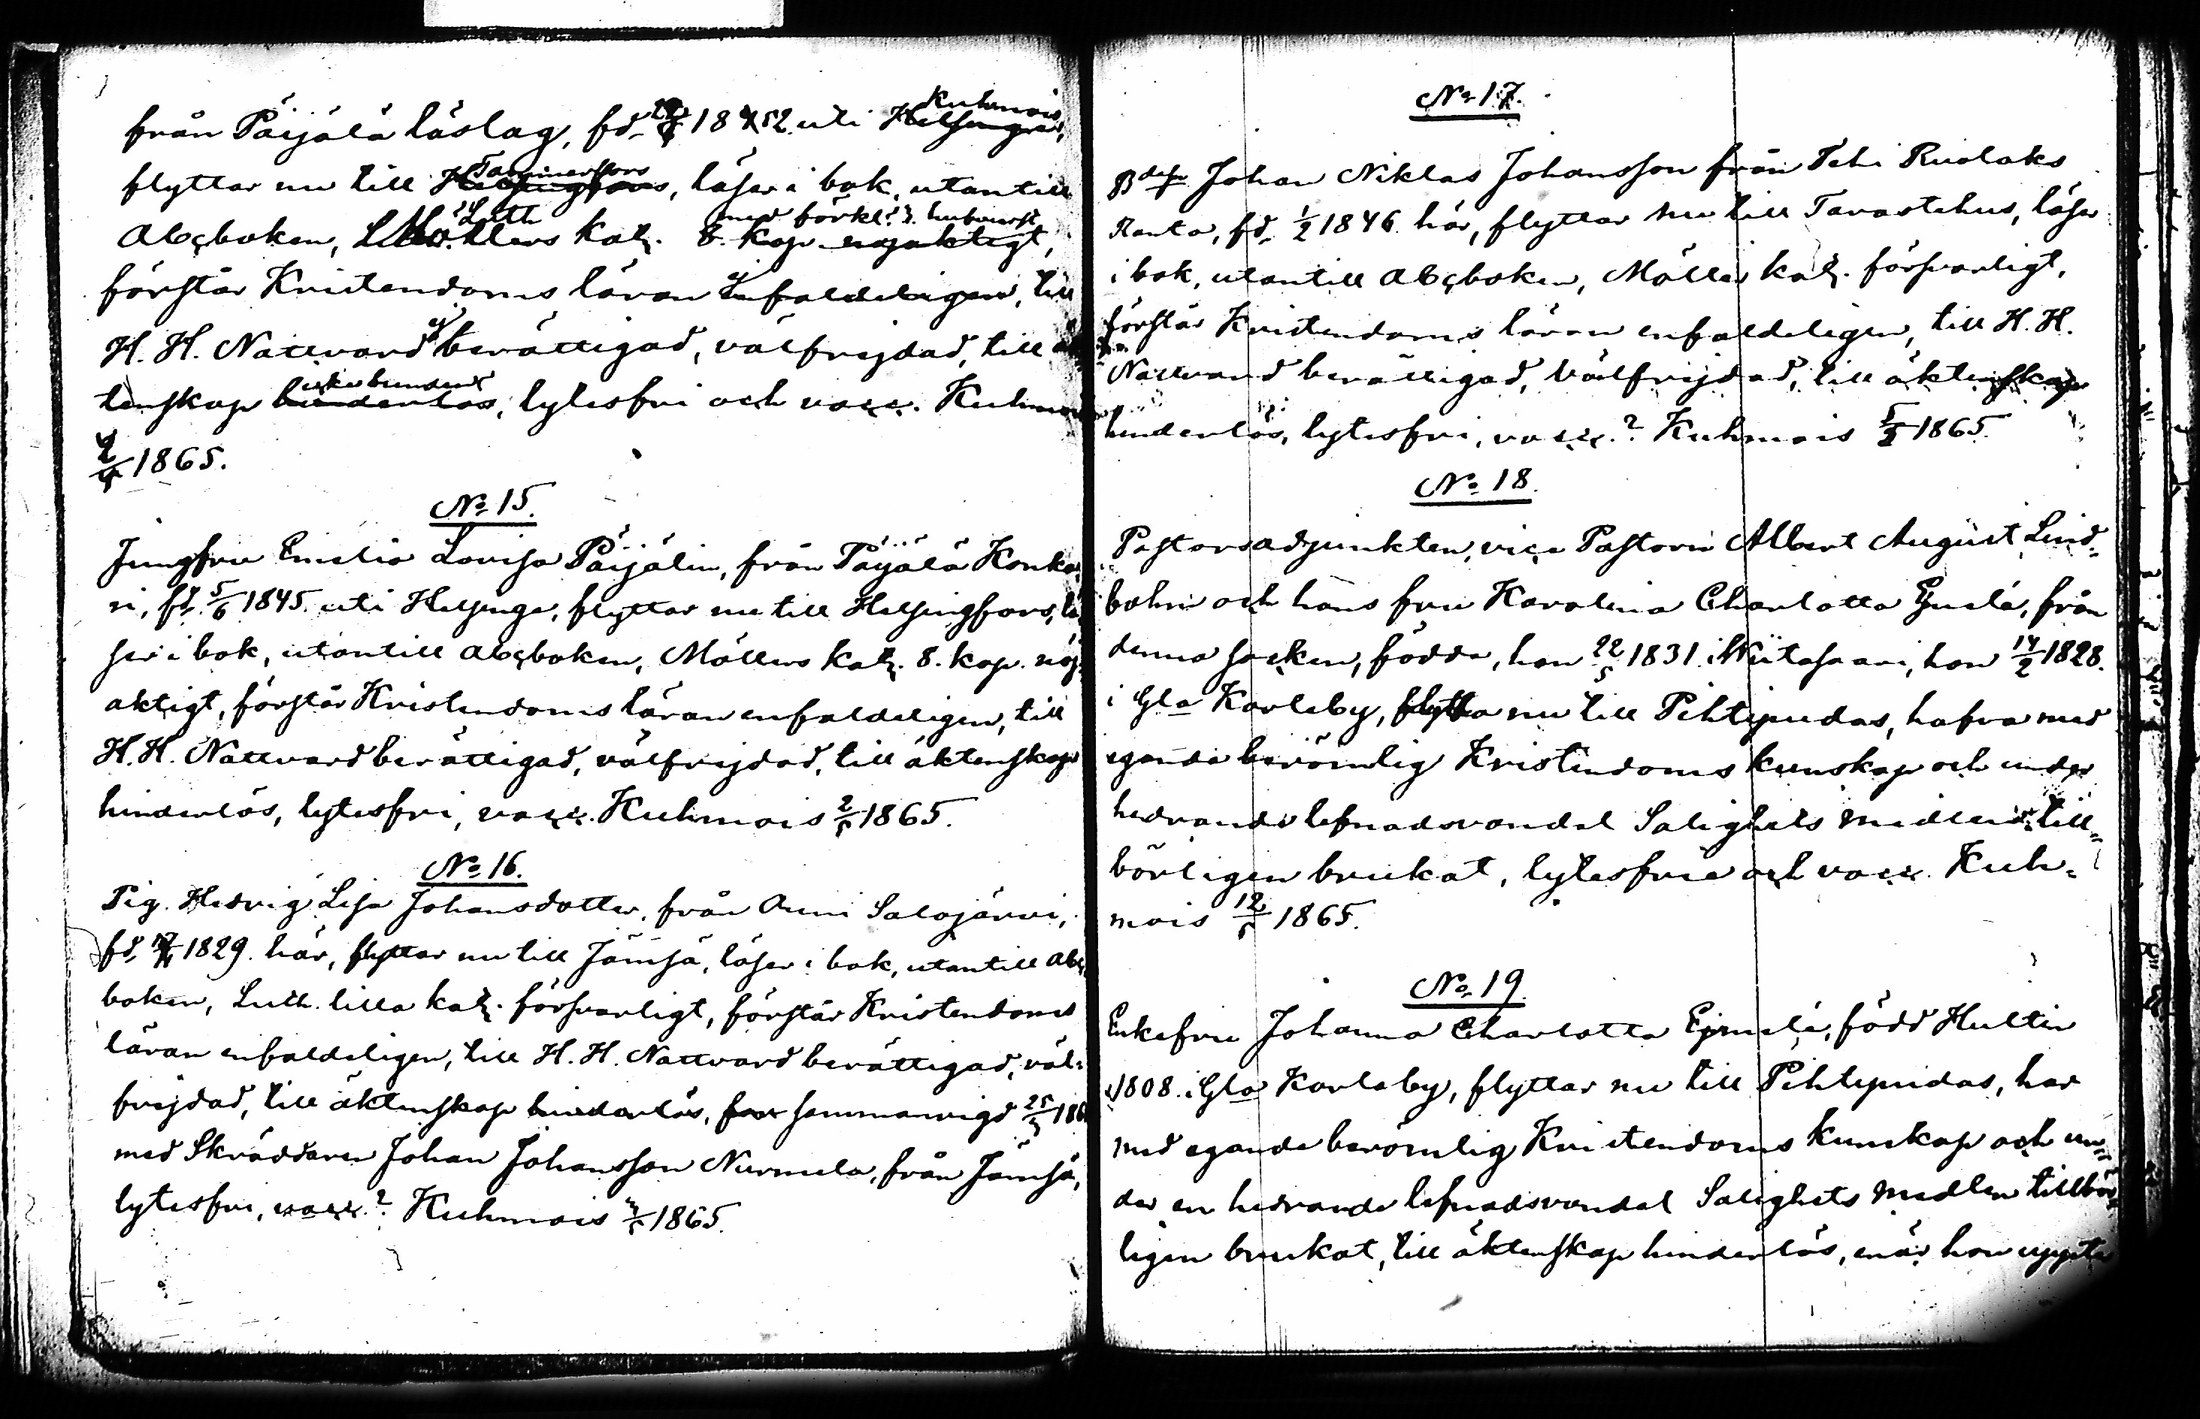 från Päijälä läslag, fd. 1852. uti Kuhmois,
flyttar nu till Tammerfors, läser i bok, utantill
Abcboken, Luth. kat. med förkl.
förstår Kristendoms läran enfaldeligen, till
H. H. Nattvard ej berättigad, välfrejdad, till äk
tenskap icke bunden, lytesfri och vacc. Kuhmois
1865.
No 15.
Jungfru Emelia Lovisa Päijälin, från Päijälä Konka
ri, fd. 5/6 1845. uti Helsinge, flyttar nu till Helsingfors, lä
ser i bok, utantill abcboken, Möllers kat. 8. kap. nöj
aktigt, förstår Kristendoms läran enfaldeligen, till
H. H. Nattvard berättigad, välfrejdad, till äktenskap
hinderlös, lytesfri, vacc. Kuhmois 2/5 1865.
No 16.
Pig. Hedvig Lisa Johansdotter, från Arvi Salojärvi,
fd. 1829. här, flyttar nu till Jämsä, läser i bok, utantill abc
boken, Luth. lilla kat. försvarligt, förstår Kristendoms
läran enfaldeligen, till H. H. Nattvard berättigad, väl-
frejdad, till äktenskap hinderlös, sammanvigd 25/3 186
med Skräddaren Johan Johansson Nurmela, från Jämsä,
lytesfri, vacc.? Kuhmois 1865.
No 17.
Johan Niklas Johansson från Tehi Ruolaks
Ranta, fd. 1/2 1846 här, flyttar nu till Tavastehus, läser
i bok, utantill abcboken, Möller kat. försvarligt,
förstår Kristendoms läran enfaldeligen, till H. H.
Nattvard berättigad, välfrejdad, till äktenskap
hinderlös, lytesfri, vacc.? Kuhmois 1865.
No 18.
Pastorsadjunkten, vice Pastorn Albert August Lind-
bohm och hans fru Karolina Charlotta Ejmelé, från
denna socken, födde, han 22/5 1831. i Wiitasaari, hon 14/2 1828.
i Gla Karleby, flytta nu till Pihtipudas, hafva med
egande berömlig Kristendoms kunskap och under
hedrande lefnadsvandel Salighets medlen till-
börligen brukat, lytesfrie och vacc. Kuh-
mois 12/5 1865.
No 19.
Enkefru Johanna Charlotta Ejmelé, född Hultin
1808. i Gla Karleby, flyttar nu till Pihtipudas, har
med egande berömlig Kristendoms kunskap och un-
der en hedrande lefnadsvandel Salighets medlen tillbör
ligen brukat, till äktenskap hinderlös, enär hon uppte